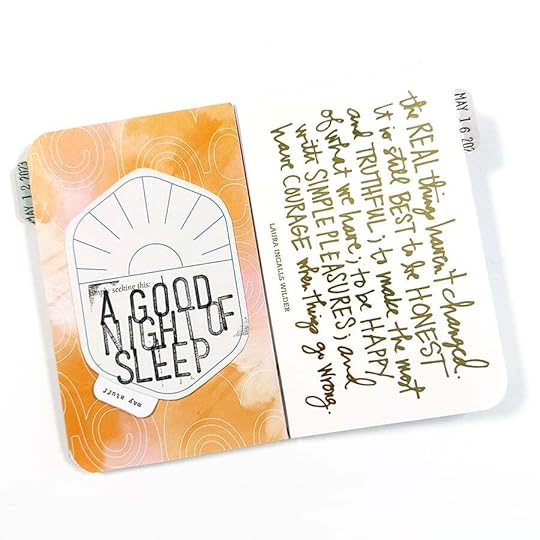 MAY 1 2 202
seeking this:
A GOOD
NIGHT OF
SLEEP
may stuff
MAY 1 6 202
the REAL things haven't changed.
It is still BEST to be HONEST
and TRUTHFUL; to make the most
of what we have; to be HAPPY
with SIMPLE PLEASURES; and
have COURAGE when things go wrong.
LAURA INGALLS WILDER